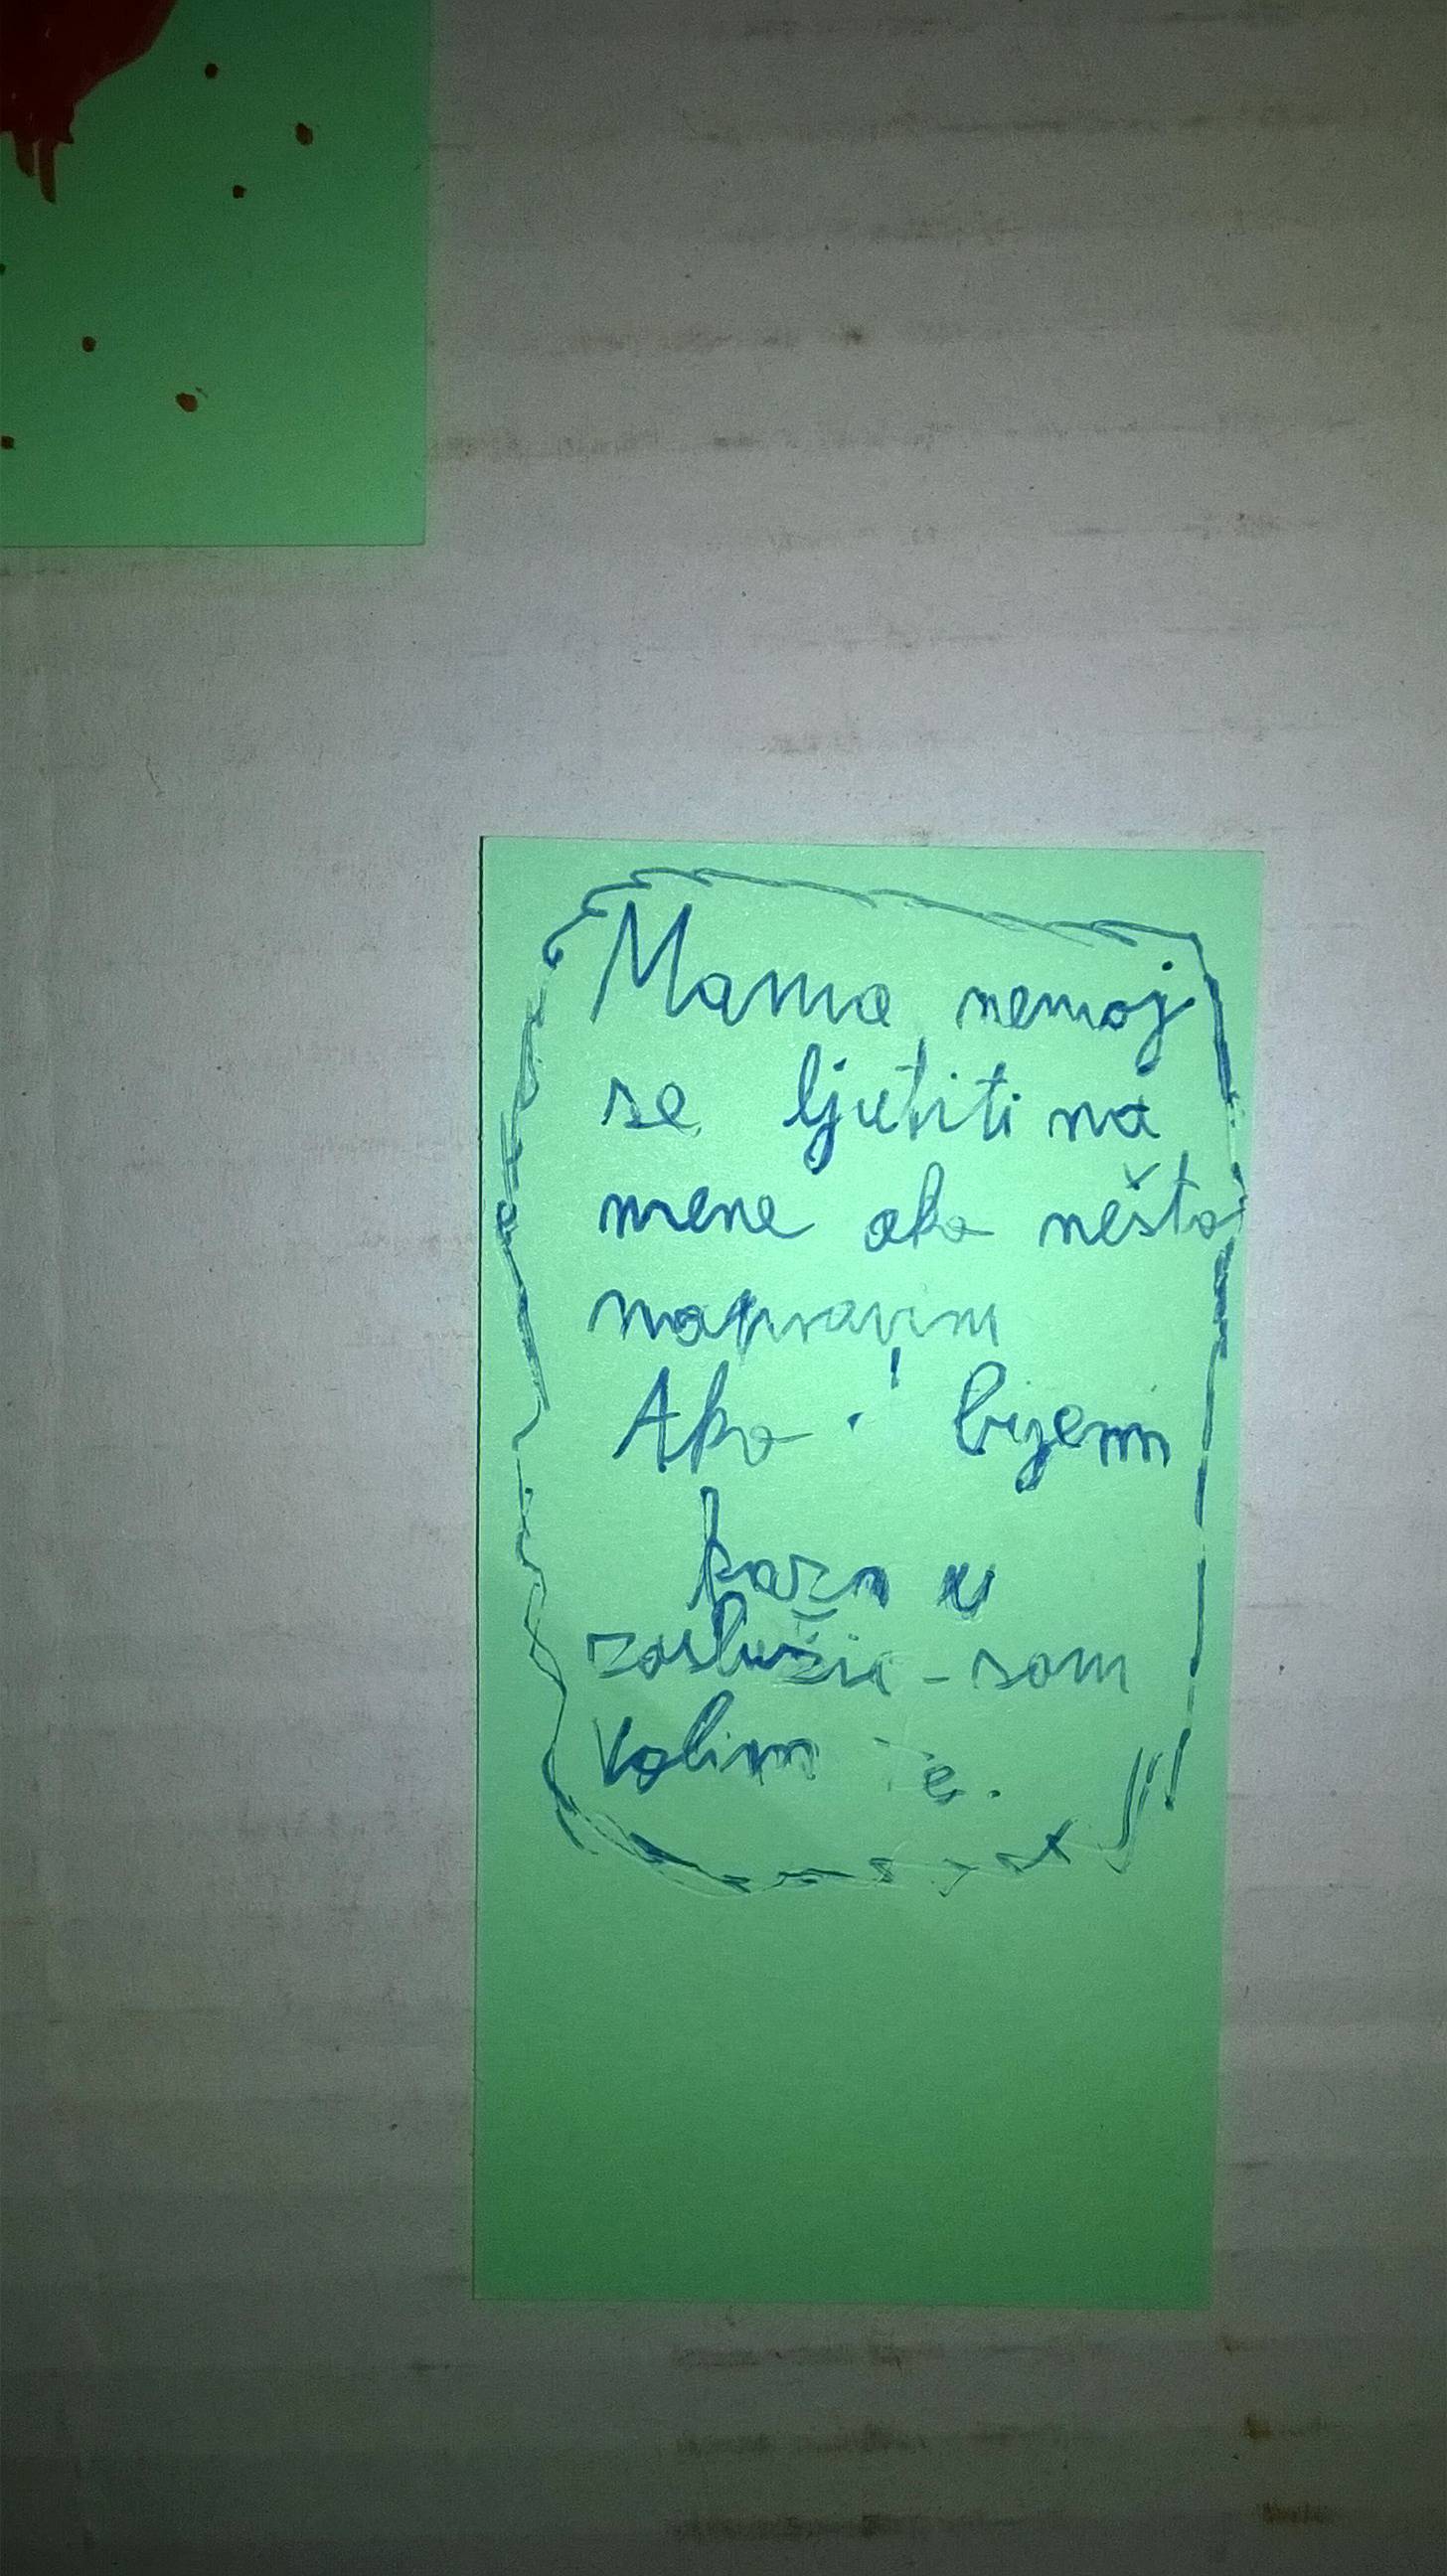 Mama nemoj
se ljutiti na
mene ako nešto
napravim
Ako i bijem
kaznu
zaslužio - sam
Volim te.